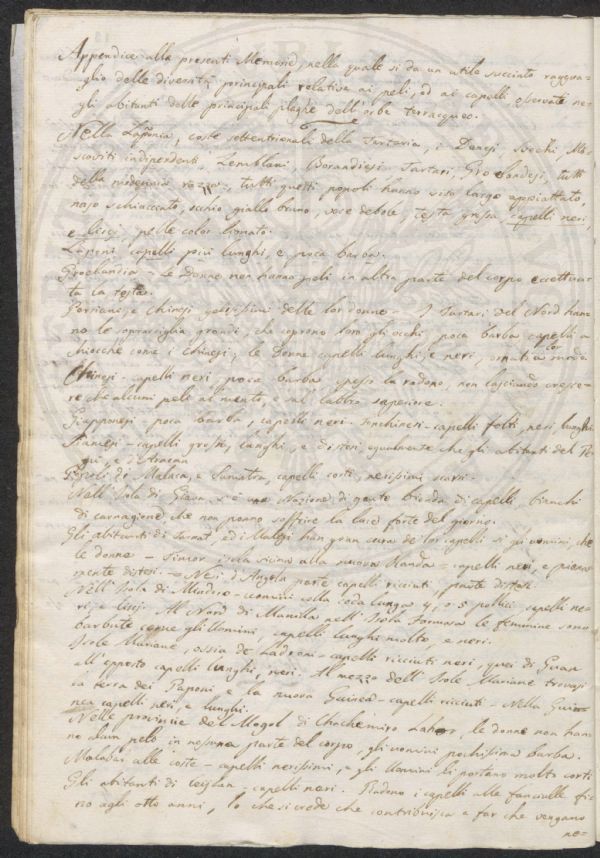 Appendice alle presenti Memorie, nella quale si da un utile succinto raggua-
glio delle diversità principali relative ai peli, ed ai capelli osservate ne-
gli abitanti delle principali plaghe dell'orbe terracqueo.
Nella Laponia, coste settentrionali della Tartaria, i Danesi, Svechi Mo-
scoviti indipendenti, Zemblani, Borandiesi Tartari, Groelandesi, tutti
della medesima razza, tutti questi popoli hanno viso largo appiattato,
naso schiacciato, occhio giallo bruno, voce debole, testa grossa, capelli neri,
e lisci, pelle color lionato.
Laponi capelli poco lunghi, e poca barba.
Groelandia - le Donne non hanno peli in altra parte del corpo eccettua-
ta la testa.
Persiane, e Chinesi gelosissimi delle lor donne - I Tartari del Nord han-
no le sopracciglia grandi, che coprono loro gli occhi, poca barba capelli a
chiocche come i Chinesi, le Donne capelli lunghi, e neri, ornati a lor moda
Chinesi - capelli neri, poca barba, spesso la radono, non lasciando cresce-
re che alcuni peli al mento, e sul labbro superiore.
Giapponesi - poca barba, capelli neri - Conchinesi - capelli folti, neri, lunghi
Siamesi - capelli grossi, lunghi, e distesi egualmente che gli abitanti del Pe-
gù, e d'Aracan
Popoli di Malaca, e Sumatra, capelli corti, nerissimi, scarsi.
Nell'Isola di Giava, v'è una Nazione di gente bionda di capelli, bianchi
di carnagione, che non ponno soffrire la luce forte del giorno.
Gli abitanti di Surnat, ed i Malesi han gran cura de' lor capelli sì gli uomini, che
le donne - Timor isola vicina alla nuova Olanda = capelli neri, e piena-
mente distesi. = Nesi d'Angola parte capelli ricciuti, parte distesi
Nell'Isola di Mindoro - uomini colla coda lunga 4, o 5 pollici, capelli ne-
ri, e lisci. Al Nord di Manilla nell'Isola Formosa le femmine sono
barbute come gli Uomini, capelli lunghi molto, e neri.
Isole Mariane, ossia de' Ladroni - capelli ricciuti neri, quei di Guan
all'opposto capelli lunghi, neri. Al mezzo dell'Isole Mariane trovasi
la terra dei Paponi e la nuova Guinea - capelli ricciuti - Nella Gui-
nea capelli neri, e lunghi.
Nelle provincie del Mogol di Chachemiro Lahor, le donne non han-
no alcun pelo in nessuna parte del corpo, gli uomini pochissima barba.
Malabar alle coste - capelli nerissimi, e gli Uomini li portano molto corti
Gli abitanti di Ceylan, capelli neri. Radono i capelli alle fanciulle fi-
no agli otto anni, lo che si crede che contribuisca a far che vengano
ne=